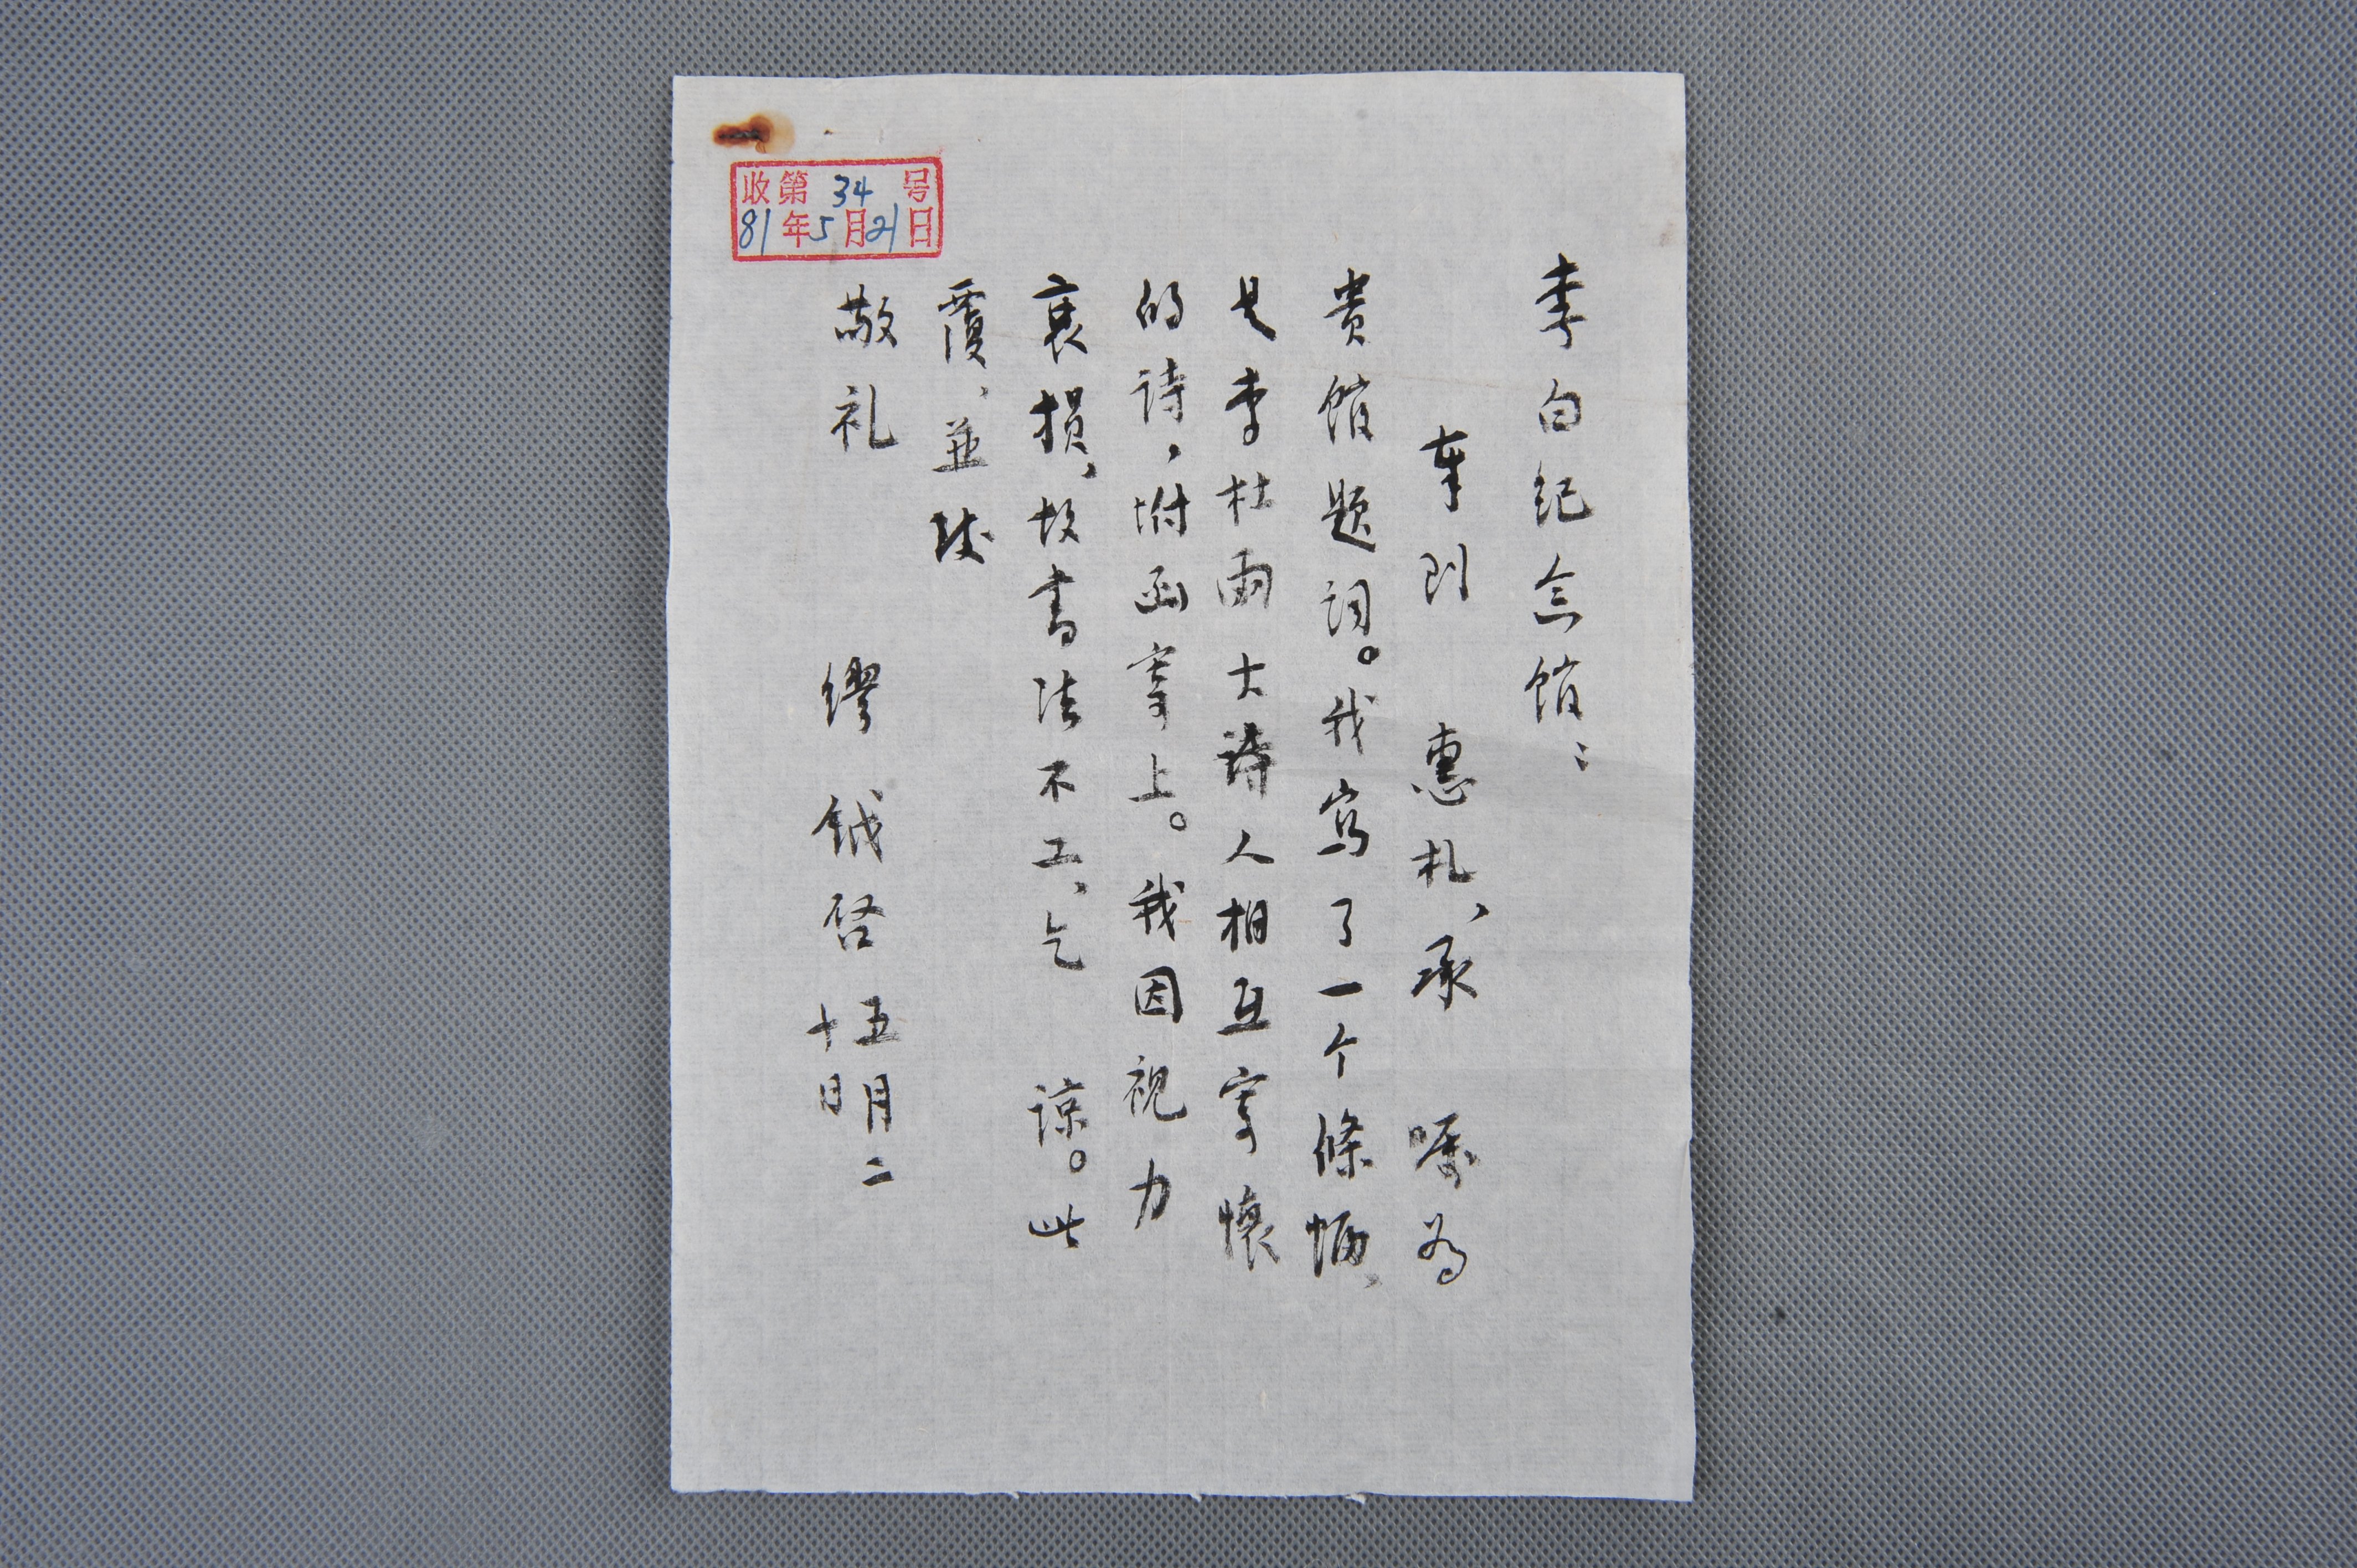 李白纪念馆：
奉到 惠札、承 嘱为
贵馆题词。我写了一个條幅、
是李杜两大诗人相互寄懷
的诗，附函寄上。我因视力
衰损、故书法不工、乞 谅。此
覆、並致
敬礼
缪钺启 五月二
十日
收第34号
81年5月21日